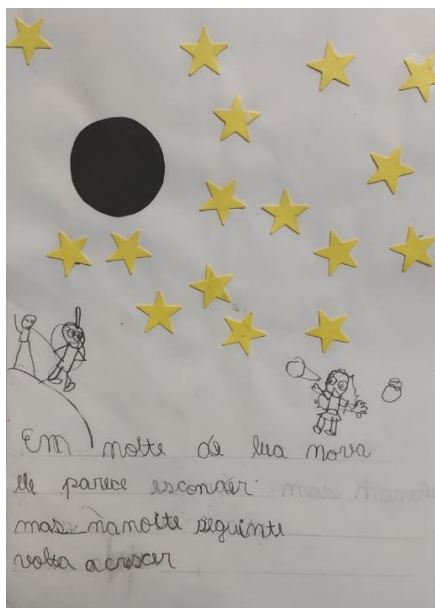 Em noite de lua nova
ele parece esconder
mas na noite seguinte
volta a crescer